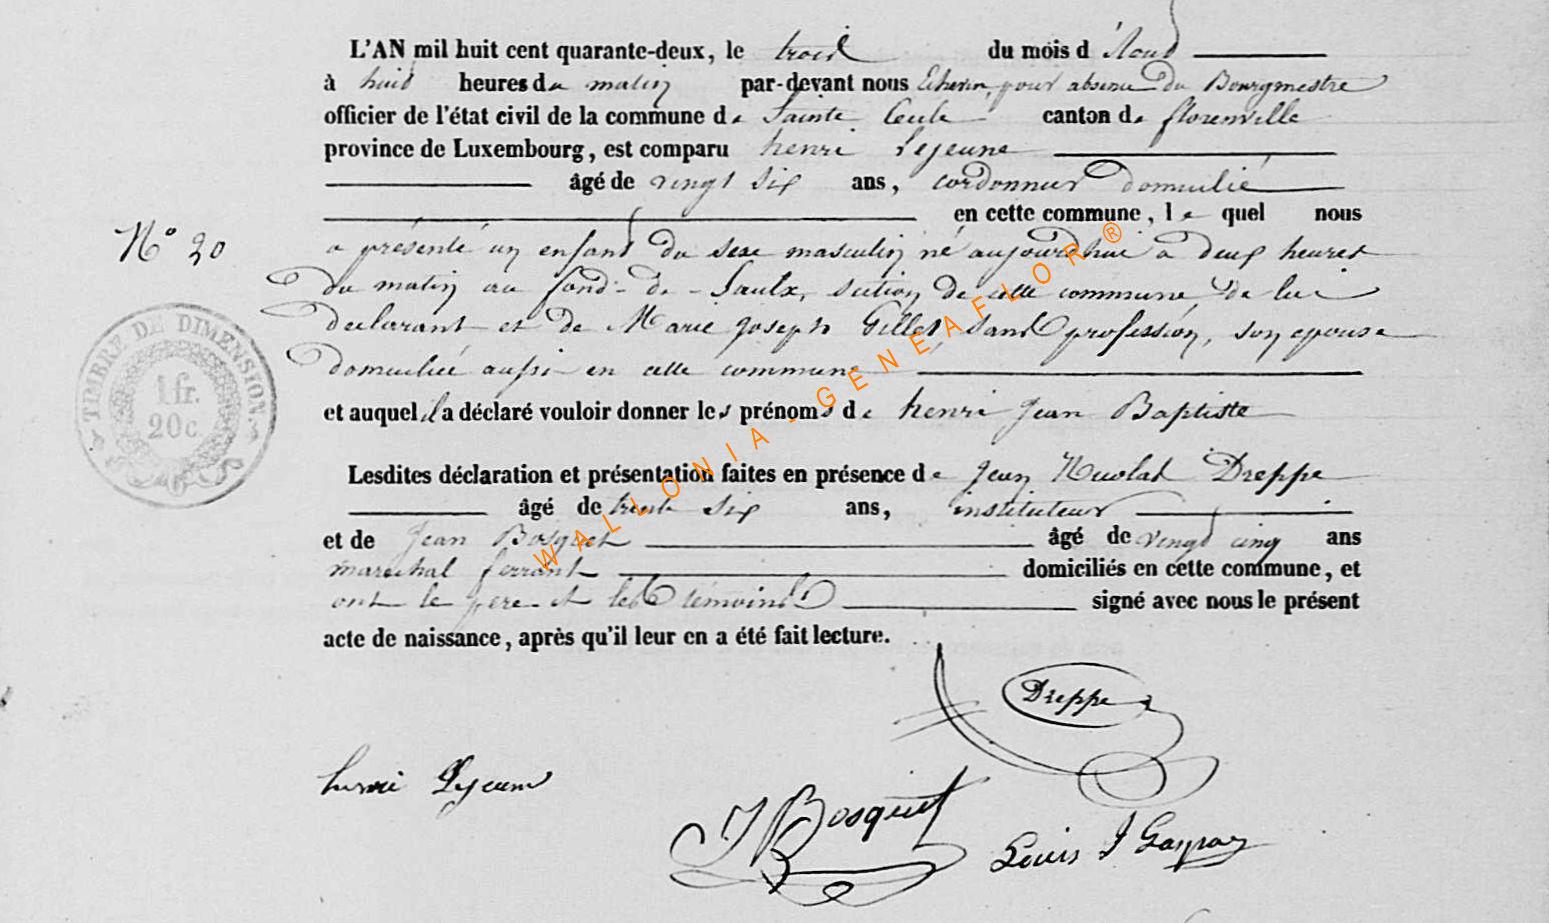 L'AN mil huit cent quarante-deux, le trois du mois d'Aout
à huit heures du matin par-devant nous Echevin, pour absence du Bourgmestre
officier de l'état civil de la commune de Sainte Cecile canton de florenville
province de Luxembourg, est comparu henri Lejeune
âgé de vingt six ans, cordonnier domicilié
en cette commune, lequel nous
N° 20
a présenté un enfant du sexe masculin né aujourd'hui à deux heures
du matin au fond-de-Saulx, section de cette commune, de lui
déclarant et de Marie Joseph Gillet sans profession, son epouse
domiciliée aussi en cette commune
et auquel il a déclaré vouloir donner les prénoms de henri Jean Baptiste
Lesdites déclaration et présentation faites en présence de Jean Nicolas Dreppe
âgé de trente six ans, instituteur
et de Jean Bosquet âgé de vingt cinq ans
marechal ferrant domiciliés en cette commune, et
ont le père et les témoins signé avec nous le présent
acte de naissance, après qu'il leur en a été fait lecture.
TIMBRE DE DIMENSION.
1 fr.
20 c.
WALLONIA-GENEAFLOR®
Dreppe
henri Lejeune
J Bosquet
Louis J Gaspar